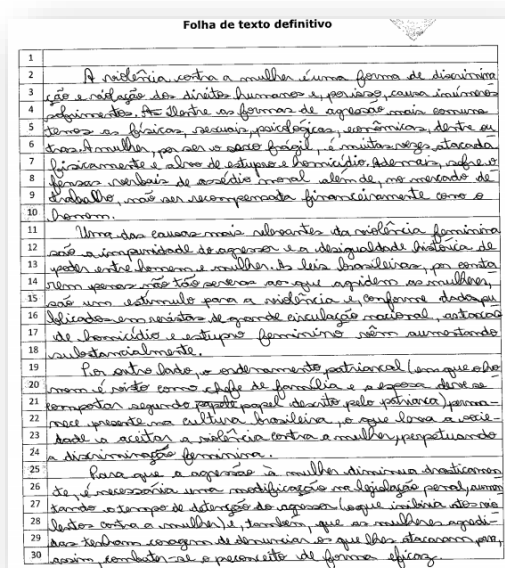 Folha de texto definitivo
1
2 A violência contra a mulher é uma forma de discrimina
3 ção e violação dos direitos humanos e, por isso, causa inúmeros
4 sofrimentos. Dentre as formas de agressão mais comuns
5 temos as físicas, sexuais, psicológicas, econômicas, dentre ou
6 tras. A mulher, por ser o sexo frágil, é muitas vezes atacada
7 fisicamente e alvo de estupro e homicídio. Ademais, sofre o
8 fensas verbais de assédio moral além de, no mercado de
9 trabalho, não ser recompensada financeiramente como o
10 homem.
11 Uma das causas mais relevantes da violência feminina
12 são a impunidade do agressor e a desigualdade histórica de
13 poder entre homem e mulher. As leis brasileiras, por conta
14 rem penas não tão severas aos que agridem as mulheres,
15 são um estímulo para a violência e, conforme dados pu
16 blicados em revistas de grande circulação nacional, os
17 de homicídio e estupro feminino vêm aumentando
18 substancialmente.
19 Por outro lado, o ordenamento patriarcal (em que o ho
20 mem é visto como chefe de família e a esposa deve se
21 comportar segundo papel descrito pelo patriarca) perma-
22 nece presente na cultura brasileira, o que leva a socie-
23 dade a aceitar a violência contra a mulher, perpetuando
24 a discriminação feminina.
25 Para que a agressão à mulher diminua drasticamen
26 te, é necessária uma modificação na legislação penal, aumen
27 tando o tempo de detenção do agressor (o que inibiria atos vio
28 lentos contra a mulher) e, também, que as mulheres agredi-
29 das tenham coragem de denunciar os que lhes atacaram para,
30 assim, combater-se o preconceito de forma eficaz.